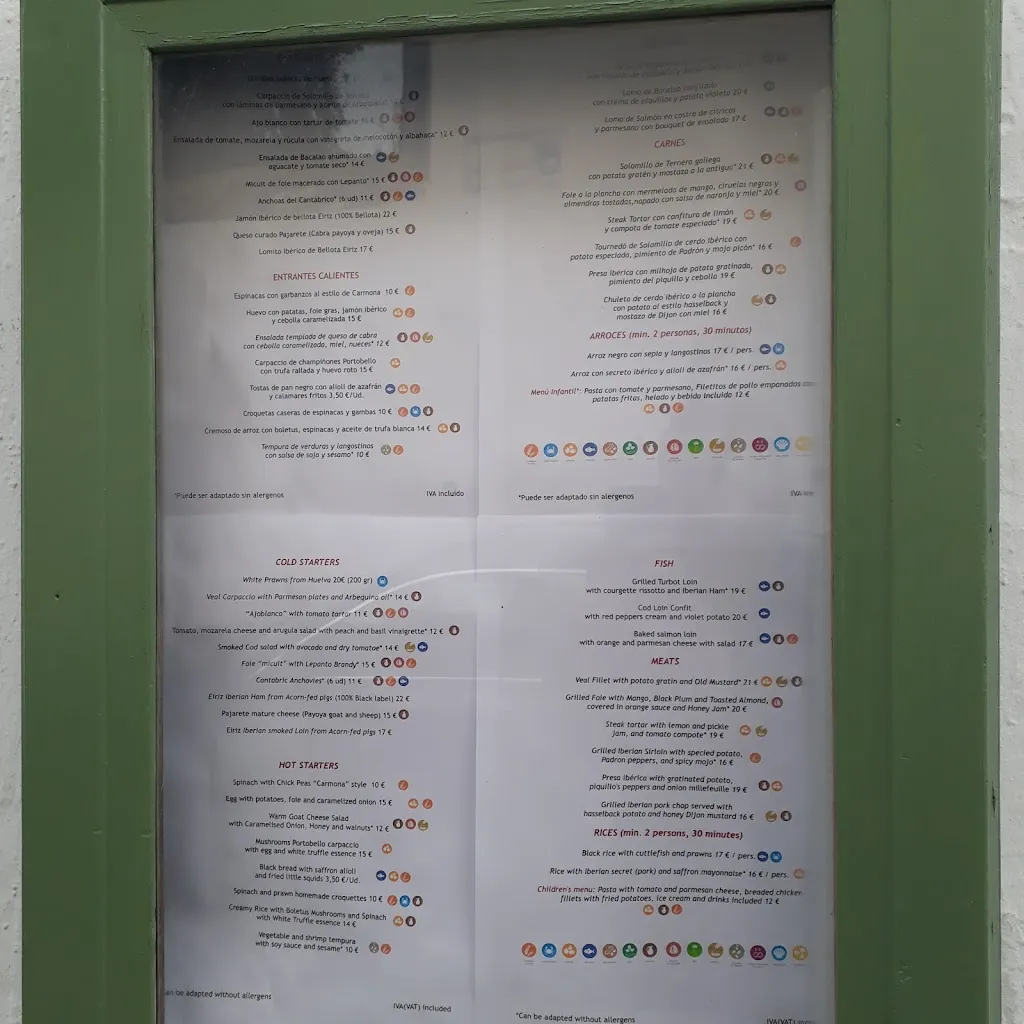 Carpaccio de Solomillo de
con láminas de parmesano y aceite de 14 €
Ajo blanco con tartar de tomate 11 €
Ensalada de tomate, mozarela y rúcula con vinagreta de melocotón y albahaca* 12 €
Ensalada de Bacalao ahumado con
aguacate y tomate seco* 14 €
Micuit de foie macerado con Lepanto* 15 €
Anchoas del Cantábrico* (6 ud) 11 €
Jamón Ibérico de bellota Eíriz (100% Bellota) 22 €
Queso curado Pajarete (Cabra payoya y oveja) 15 €
Lomito Ibérico de Bellota Eíriz 17 €
ENTRANTES CALIENTES
Espinacas con garbanzos al estilo de Carmona 10 €
Huevo con patatas, foie gras, jamón ibérico
y cebolla caramelizada 15 €
Ensalada templada de queso de cabra
con cebolla caramelizada, miel, nueces* 12 €
Carpaccio de champiñones Portobello
con trufa rallada y huevo roto 15 €
Tostas de pan negro con alioli de azafrán
y calamares fritos 3,50 €/Ud.
Croquetas caseras de espinacas y gambas 10 €
Cremoso de arroz con boletus, espinacas y aceite de trufa blanca 14 €
Tempura de verduras y langostinos
con salsa de soja y sésamo* 10 €
*Puede ser adaptado sin alergenos
IVA incluido
Lomo de Bacalao confitado
con crema de piquillos y patata violeta 20 €
Lomo de Salmón en costra de cítricos
y parmesano con bouquet de ensalada 17 €
CARNES
Solomillo de Ternera gallega
con patata gratén y mostaza a la antigua* 21 €
Foie a la plancha con mermelada de mango, ciruelas negras y
almendras tostadas,napado con salsa de naranja y miel* 20 €
Steak Tartar con confitura de limón
y compota de tomate especiado* 19 €
Tournedó de Solomillo de cerdo Ibérico con
patata especiada, pimiento de Padrón y mojo picón* 16 €
Presa Ibérica con milhoja de patata gratinada,
pimiento del piquillo y cebolla 19 €
Chuleta de cerdo ibérico a la plancha
con patata al estilo hasselback y
mostaza de Dijon con miel 16 €
ARROCES (min. 2 personas, 30 minutos)
Arroz negro con sepia y langostinos 17 € / pers.
Arroz con secreto ibérico y alioli de azafrán* 16 € / pers.
Menú Infantil*: Pasta con tomate y parmesano, Filetitos de pollo empanados con
patatas fritas, helado y bebida incluida 12 €
*Puede ser adaptado sin alergenos
IVA
COLD STARTERS
White Prawns from Huelva 20€ (200 gr)
Veal Carpaccio with Parmesan plates and Arbequina oil* 14 €
"Ajoblanco" with tomato tartar 11 €
Tomato, mozarela cheese and arugula salad with peach and basil vinaigrette* 12 €
Smoked Cod salad with avocado and dry tomatoe* 14 €
Foie "micuit" with Lepanto Brandy* 15 €
Cantabric Anchovies* (6 ud) 11 €
Eiriz Iberian Ham from Acorn-fed pigs (100% Black label) 22 €
Pajarete mature cheese (Payoya goat and sheep) 15 €
Eiriz Iberian smoked Loin from Acorn-fed pigs 17 €
HOT STARTERS
Spinach with Chick Peas "Carmona" style 10 €
Egg with potatoes, foie and caramelized onion 15 €
Warm Goat Cheese Salad
with Caramelised Onion, Honey and walnuts* 12 €
Mushrooms Portobello carpaccio
with egg and white truffle essence 15 €
Black bread with saffron allioli
and fried little squids 3,50 €/Ud.
Spinach and prawn homemade croquettes 10 €
Creamy Rice with Boletus Mushrooms and Spinach
with White Truffle essence 14 €
Vegetable and shrimp tempura
with soy sauce and sesame* 10 €
an be adapted without allergens
IVA(VAT) included
FISH
Grilled Turbot Loin
with courgette rissotto and Iberian Ham* 19 €
Cod Loin Confit
with red peppers cream and violet potato 20 €
Baked salmon loin
with orange and parmesan cheese with salad 17 €
MEATS
Veal Fillet with potato gratin and Old Mustard* 21 €
Grilled Foie with Mango, Black Plum and Toasted Almond,
covered in orange sauce and Honey Jam* 20 €
Steak tartar with lemon and pickle
jam, and tomato compote* 19 €
Grilled Iberian Sirloin with specied potato,
Padron peppers, and spicy mojo* 16 €
Presa Ibérica with gratinated potato,
piquillo's peppers and onion millefeuille 19 €
Grilled Iberian pork chop served with
hasselback potato and honey Dijon mustard 16 €
RICES (min. 2 persons, 30 minutes)
Black rice with cuttlefish and prawns 17 € / pers.
Rice with Iberian secret (pork) and saffron mayonnaise* 16 € / pers.
Children's menu: Pasta with tomato and parmesan cheese, breaded chicken
fillets with fried potatoes, ice cream and drinks included 12 €
*Can be adapted without allergens
IVA(VAT)